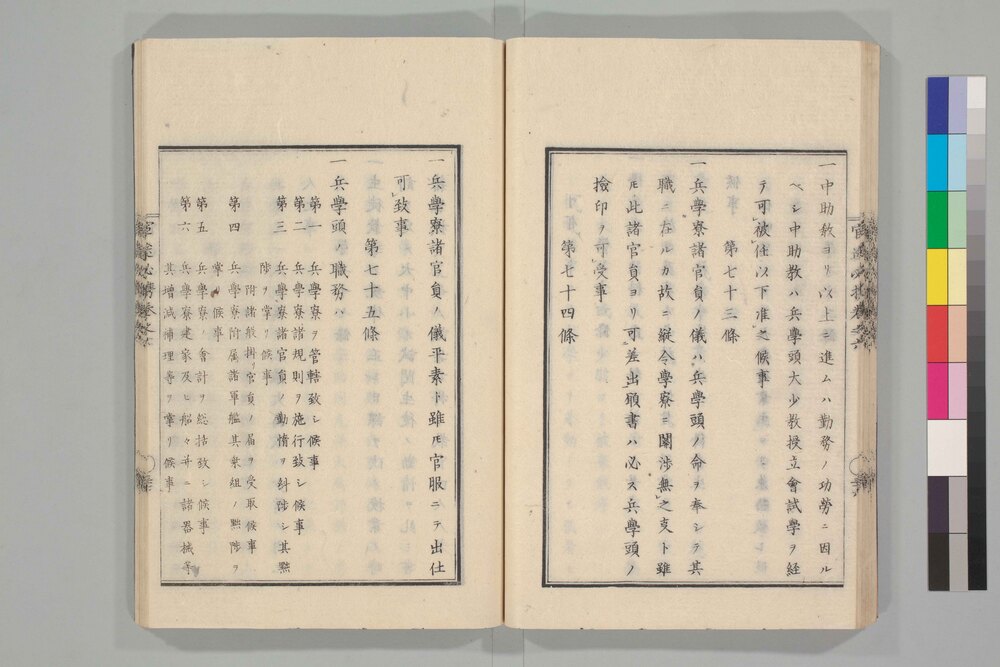 一中助敎ヨリ以上ニ進ムハ勤務ノ功勞ニ因ル
ベシ中助敎ハ兵學頭大少敎授立會試學ヲ経
テ可被任以下准之候事
第七十三條
一兵學寮諸官員ノ儀ハ兵學頭ノ命ヲ奉シテ其
職ニ在ルカ故ニ縱令學寮ニ關渉無之支ト雖
𪜈此諸官員ヨリ可差出願書ハ必ス兵學頭ノ
撿印ヲ可受事
第七十四條
一兵學寮諸官員ノ儀平素ト雖𪜈官服ニテ出仕
可致事
第七十五條
一兵學頭ノ職務ハ
第一 兵學寮ヲ管轄致シ候事
第二 兵學寮諸規則ヲ施行致シ候事
第三 兵學寮諸官員ノ勤惰ヲ糾陟シ其黜
陟ヲ掌リ候事
附諸般揖官員ノ届ヲ受取候事
第四 兵學寮附属諸軍艦其乗組ノ黜陟ヲ
掌リ候事
第五 兵學寮ノ會計ヲ総括致シ候事
第六 兵學寮建家及ヒ船々并ニ諸器械等
其增減補理等ヲ掌リ候事